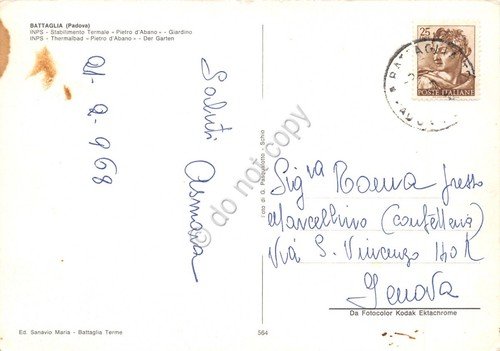 BATTAGLIA (Padova)
INPS - Stabilimento Termale « Pietro d'Abano » - Giardino
INPS - Thermalbad « Pietro d'Abano » - Der Garten
21-9-968
Saluti
Asmara
25
POSTE ITALIANE
Foto di G. Pasqualotto - Schio
do not copy
Sig.ra Roma presso
Marcellino (Confetteria)
Via S. Vincenzo 140 R
Genova
Da Fotocolor Kodak Ektachrome
Ed. Sanavio Maria - Battaglia Terme
564